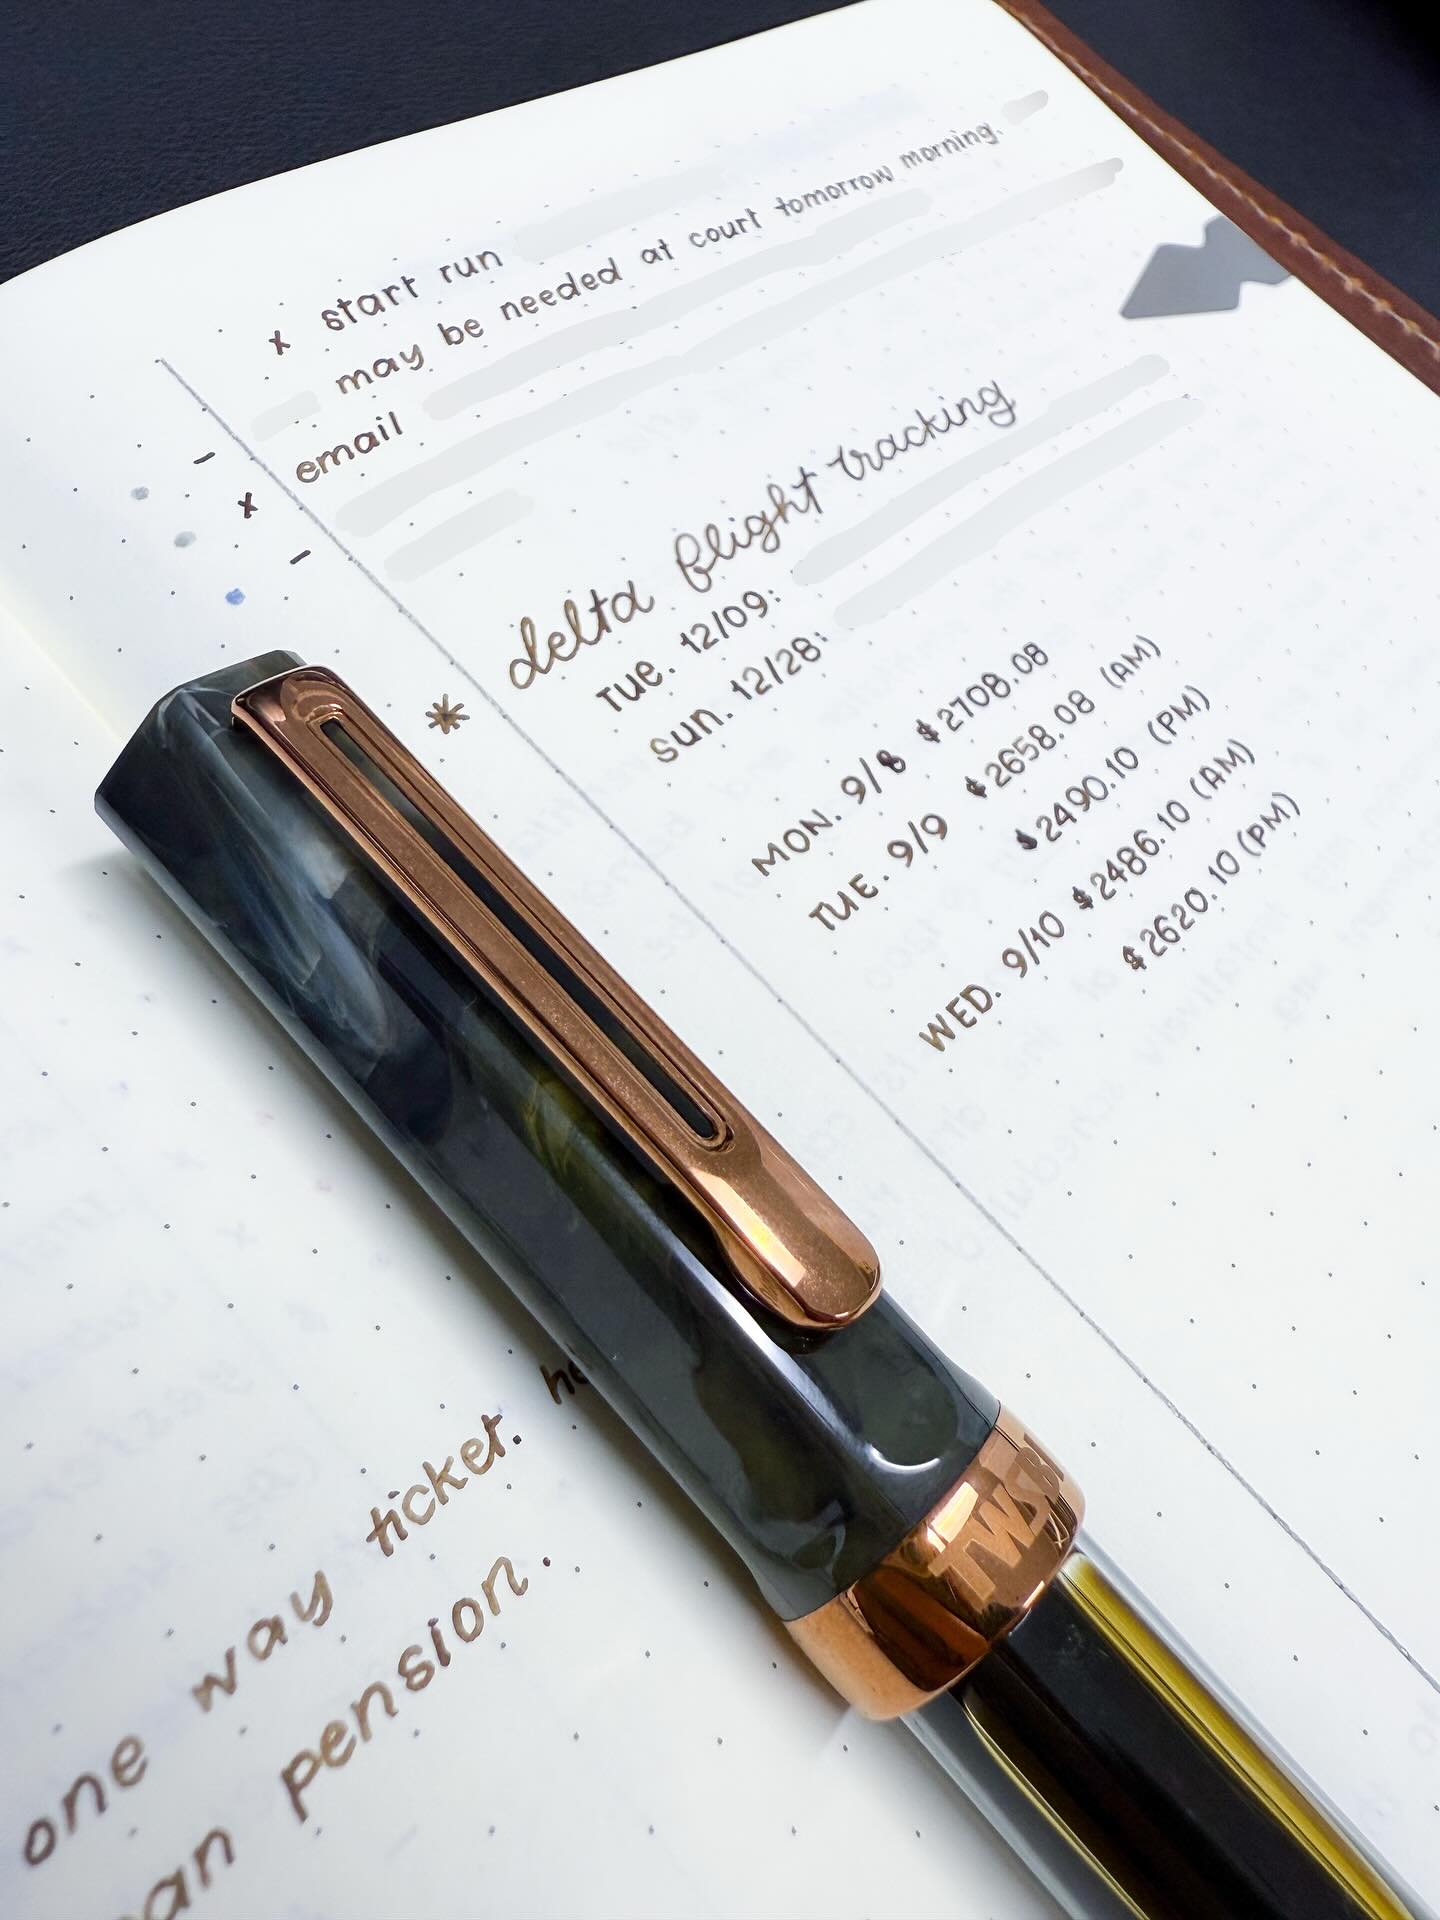 x start run
may be needed at court tomorrow morning.
- email
x
-
* delta flight tracking
TUE. 12/09:
sun. 12/28:
MON. 9/8 $2708.08
TUE. 9/9 $2658.08 (AM)
$2490.10 (PM)
WED. 9/10 $2486.10 (AM)
$2620.10 (PM)
one way ticket.
pension.
TWSBI